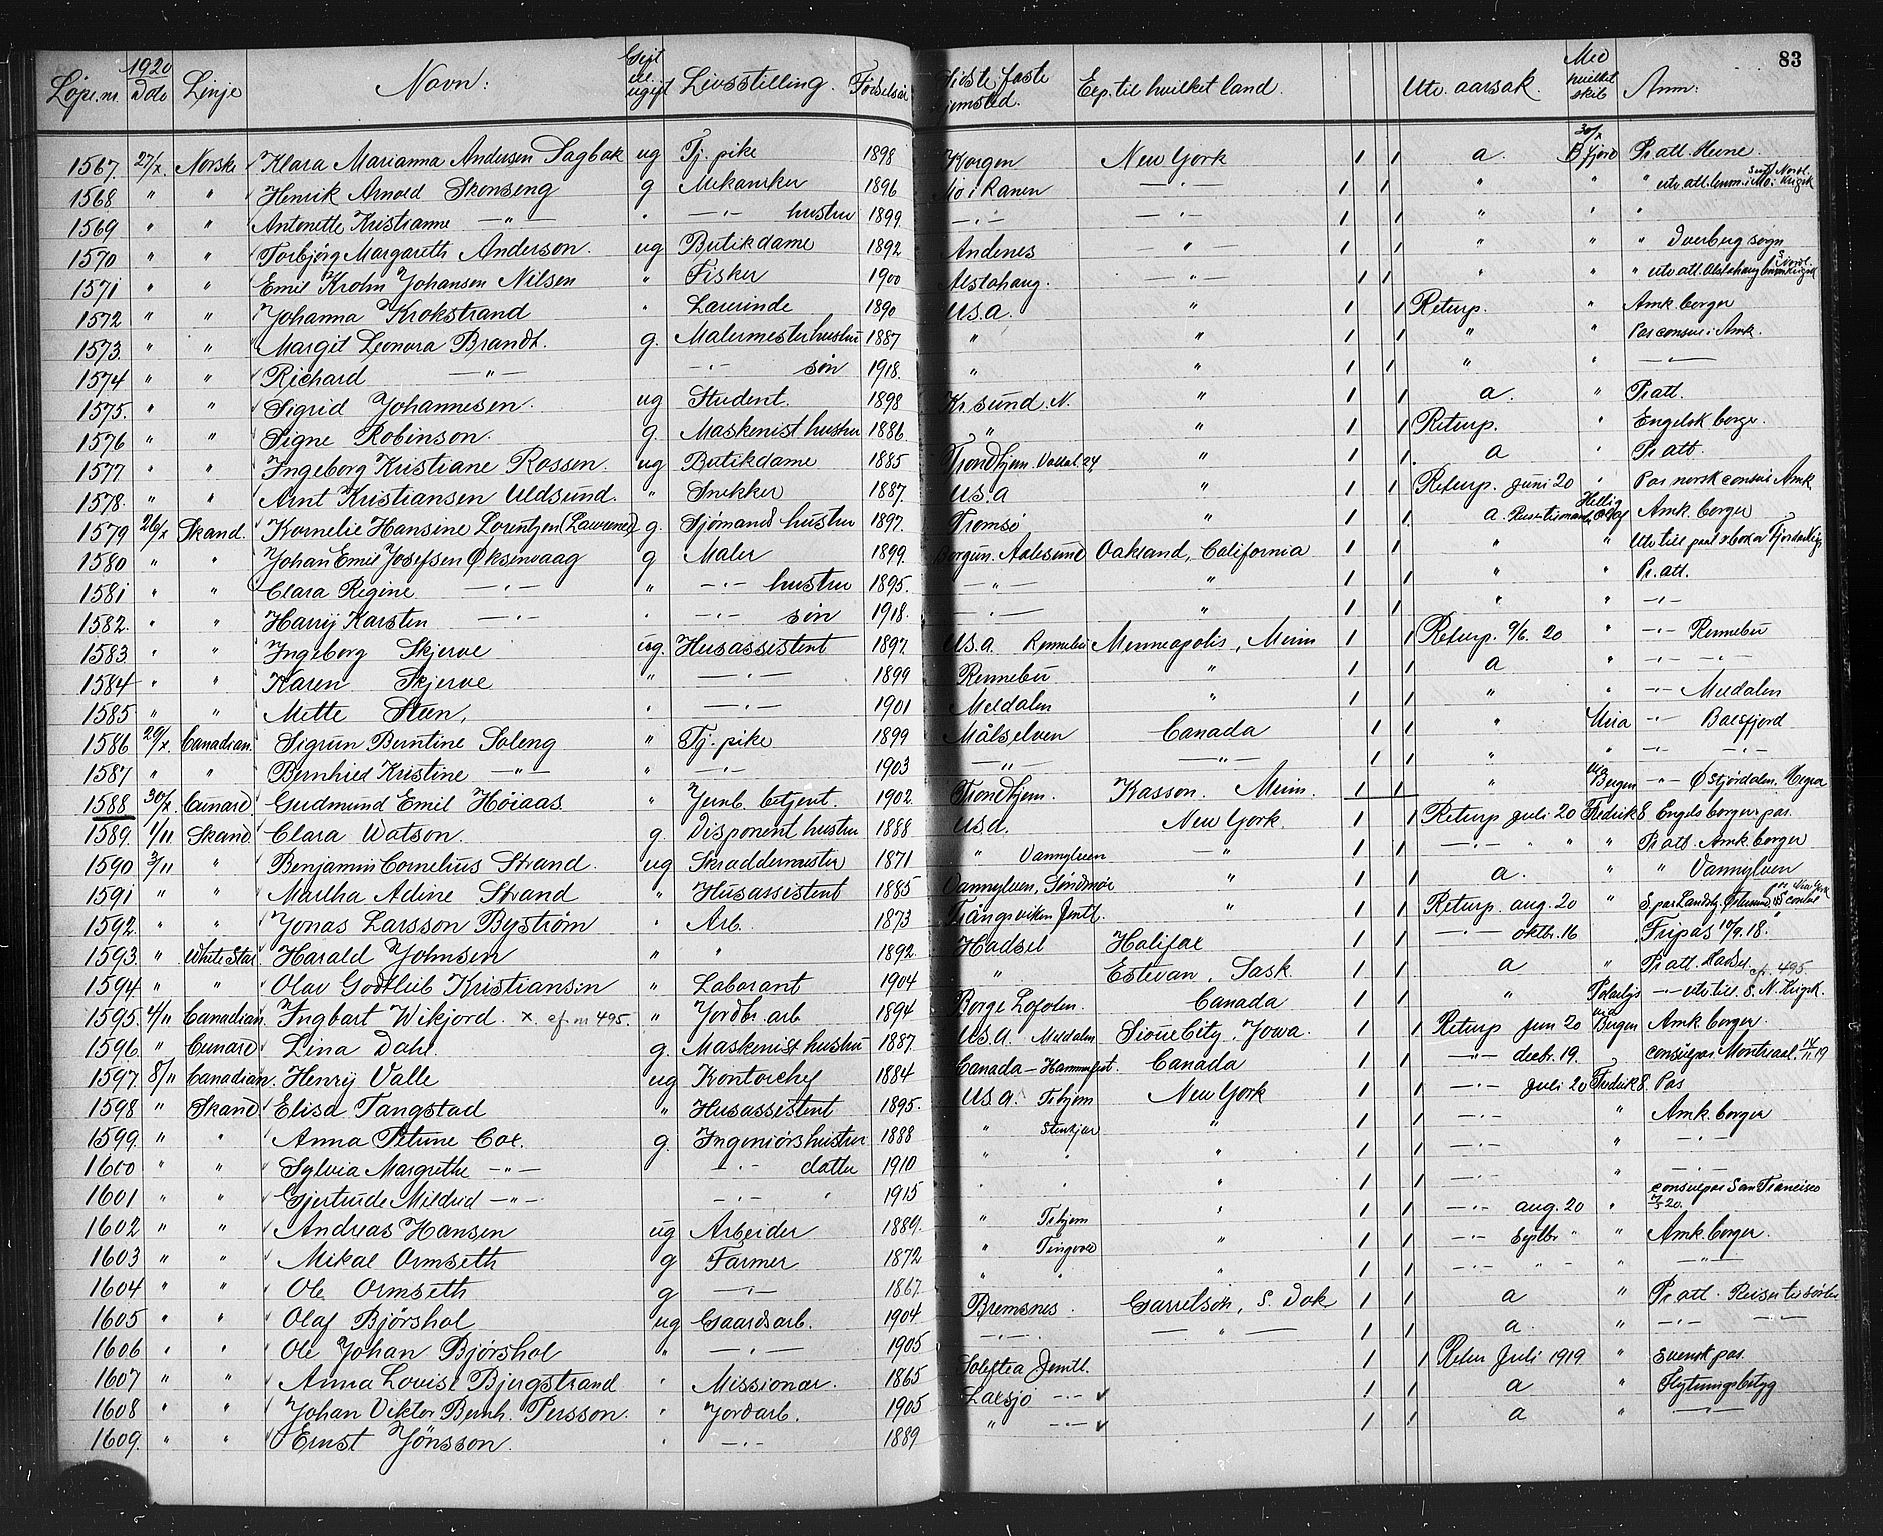 83
Løpe.nr. 1920 Dato Linje Navn: Gift el. ugift Livsstilling. Fødselsår Sidste faste hjemsted. Exp. til hvilket land. Utv. aarsak. Med hvilket skib Anm:
1567. 27/x. Norske Klara Marianna Andersen Sagbak ug Tj. pike 1898 Korgen New York 1 1 a. 30/x B.fjord Pr att. Hevne.
1568 " " Henrik Arnold Skonseng g Mekaniker 1896 Mo i Ranen —"— 1 1 " " " utv. att.
1569 " " Antonette Kristianne —"— " —"— hustru 1899. —"— —"— 1 1 " " "
1570 " " Torbjørg Margareth Anderson. ug Butikdame 1892 Andenes " 1 1 " " " Dverberg sogn
1571 " " Emil Krohn Johansen Nilsen " Fisker 1900 Alstahaug. —"— 1 1 " " " utv att. Alstahaug
1572 " " Johanna Krokstrand " Lærerinde 1890 U.S.a. " 1 1 Returp. " Amk. borger
1573. " " Margit Leonora Brandt. g. Malermester hustru 1887 " " 1 1 " " Pas consul i Amk.
1574 " " Richard —"— —"— søn 1918. " " 1 1 " " —"—
1575. " " Sigrid Johannesen. ug Student. 1898 Kr.sund. N. " 1 1 a. " Pr att.
1576 " " Signe Robinson. g. Maskinist hustru 1886 " " 1 1 Returp. " Engelsk borger.
1577. " " Ingeborg Kristiane Rossen. ug Butikdame 1885 Trondhjem. 24 " 1 1 a " Pr att.
1578. " " Arnt Kristiansen Uldsund. " Snekker 1887. U.S.a " 1 1 Returp. Juni 20 " Pas norsk consul i Amk.
1579 26/x Skand. Kornelie Hansine Lorentzen (Lawrence) g. Sjömand hustru 1897. Tromsø " 1 1 a. Hellig Olaf Amk. borger
1580 " " Johan Emil Josefsen Øksenvaag g Maler 1899. Borgun. Aalesund Oakland, California 1 1 " " Utv till
1581 " " Clara Regine —"— " —"— hustru 1895. —"— " 1 1 " " Pr. att.
1582. " " Harry Karsten —"— " —"— søn 1918. —"— " 1 1 " " —"—
1583. " " Ingeborg Skjerve ug. Husassistent 1897. U.S.a. Rennebu Menneapolis, Minn 1 1 Returp. 9/6. 20 " —"— Rennebu
1584 " " Karen Skjerve " —"— 1899 Rennebu " 1 1 a " —"— —"—
1585 " " Mette Steen, " —"— 1901 Meldalen " 1 1 " " —"— Meldalen
1586 29/x. Canadian. Sigrun Berntine Soleng " Tj. pike 1899 Målselven Canada 1 1 " Mira —"— Balsfjord
1587 " " Bernhied Kristine —"— " —"— 1903 —"— —"— 1 1 " " —"— —"—
1588 30/x Cunard. Gudmund Emil Höiaas " Jernb. betjent. 1902. Trondhjem. Kasson. Minn. 1 1 " via Bergen —"— Ø Stjördalen. Hegra
1589. 1/11 Skand. Clara Watson. g. Disponent hustru 1888 U.S.a. New York. 1 1 Returp juli 20 Fredrik 8 Engels borger pas.
1590 3/11 " Benjamin Cornelius Strand. ug Skræddermester 1871 " Vannylven —"— 1 1 —"— " " " Pr att. Amk. borger
1591 " " Martha Adine Strand " Husassistent 1885 Vannylven, Söndmör " 1 1 a. " " Vannylven
1592. " " Jonas Larsson Byström " Arb. 1873 Trångsviken Jemtl. " 1 1 Returp. aug. 20 "
1593. " White Star Harald Johnsen " " 1892 Hadsel Halifax 1 1 —"— oktbr. 16 " Fripas 17/9. 18.
1594 " " Olav Godtlieb Kristiansen " Laborant 1904 " Estevan, Sask. 1 1 a " Pr att. Hadsel cf. 495.
1595. 4/11 Canadian. Ingbart Wikjord. x. cf. nr 495. " Jordbr. arb 1894 Borge Lofoten. Canada 1 1 " Polarlys —"— utv till. S. N. Krigsk.
1596. " Cunard Lina Dahl g. Maskinist hustru 1887. U.S.A. Meldalen Sioux City, Jowa. 1 1 Returp Juni 20 via Bergen Amk. borger.
1597. 8/11 Canadian. Henry Valle ug Kontorchef 1884 Canada – Hammerfest. Canada 1 1 —"— decbr. 19. " consulpas Montreal. 14/11.19
1598 " Skand Elisa Tangstad " Husassistent 1895. U.S.a. Trhjem New York 1 1 —"— Juli 20 Fredrik 8. Pas
1599. " " Anna Petrine Cox. g. Ingeniörshustru 1888 " Stenkjær " 1 1 —"— " Amk. borger
1600 " " Sylvia Margrethe —"— —"— datter 1910 " " " 1 1 —"— " —"—
1601 " " Gjertrude Mildred —"— —"— " 1915 " " " 1 1 —"— —"—
1602 " " Andreas Hansen ug Arbeider 1889. " Trhjem " 1 1 —"— aug. 20 " consulpas San Francisco 7/5 20.
1603 " " Mikal Ormseth g Farmer 1872 " Tingvold " 1 1 —"— Septbr " " Amk. borger.
1604 " " Ole Ormseth g —"— 1867. " " " 1 1 —"— " " " —"—
1605 " " Olaf Bjørshol ug Gaardsarb. 1904 Bremsnes. Garretson, S. Dak 1 1 a " Pr att.
1606 " " Ole Johan Bjørshol " —"— 1905 —"— —"— 1 1 a. " —"— —"—
1607 " " Anna Lovise Bjergstrand " Missionær. 1865 Soleftea Jemtl. 1 1 Retur Juli 1919 " Svensk pas.
1608 " " Johan Viktor Bernh. Persson. " Jordarb. 1905 Laxsjö —"— ✓ 1 1 a " Flytningsbetyg
1609 " " Ernst Jönsson. " —"— 1889 " —"— ✓ 1 1 a " —"—